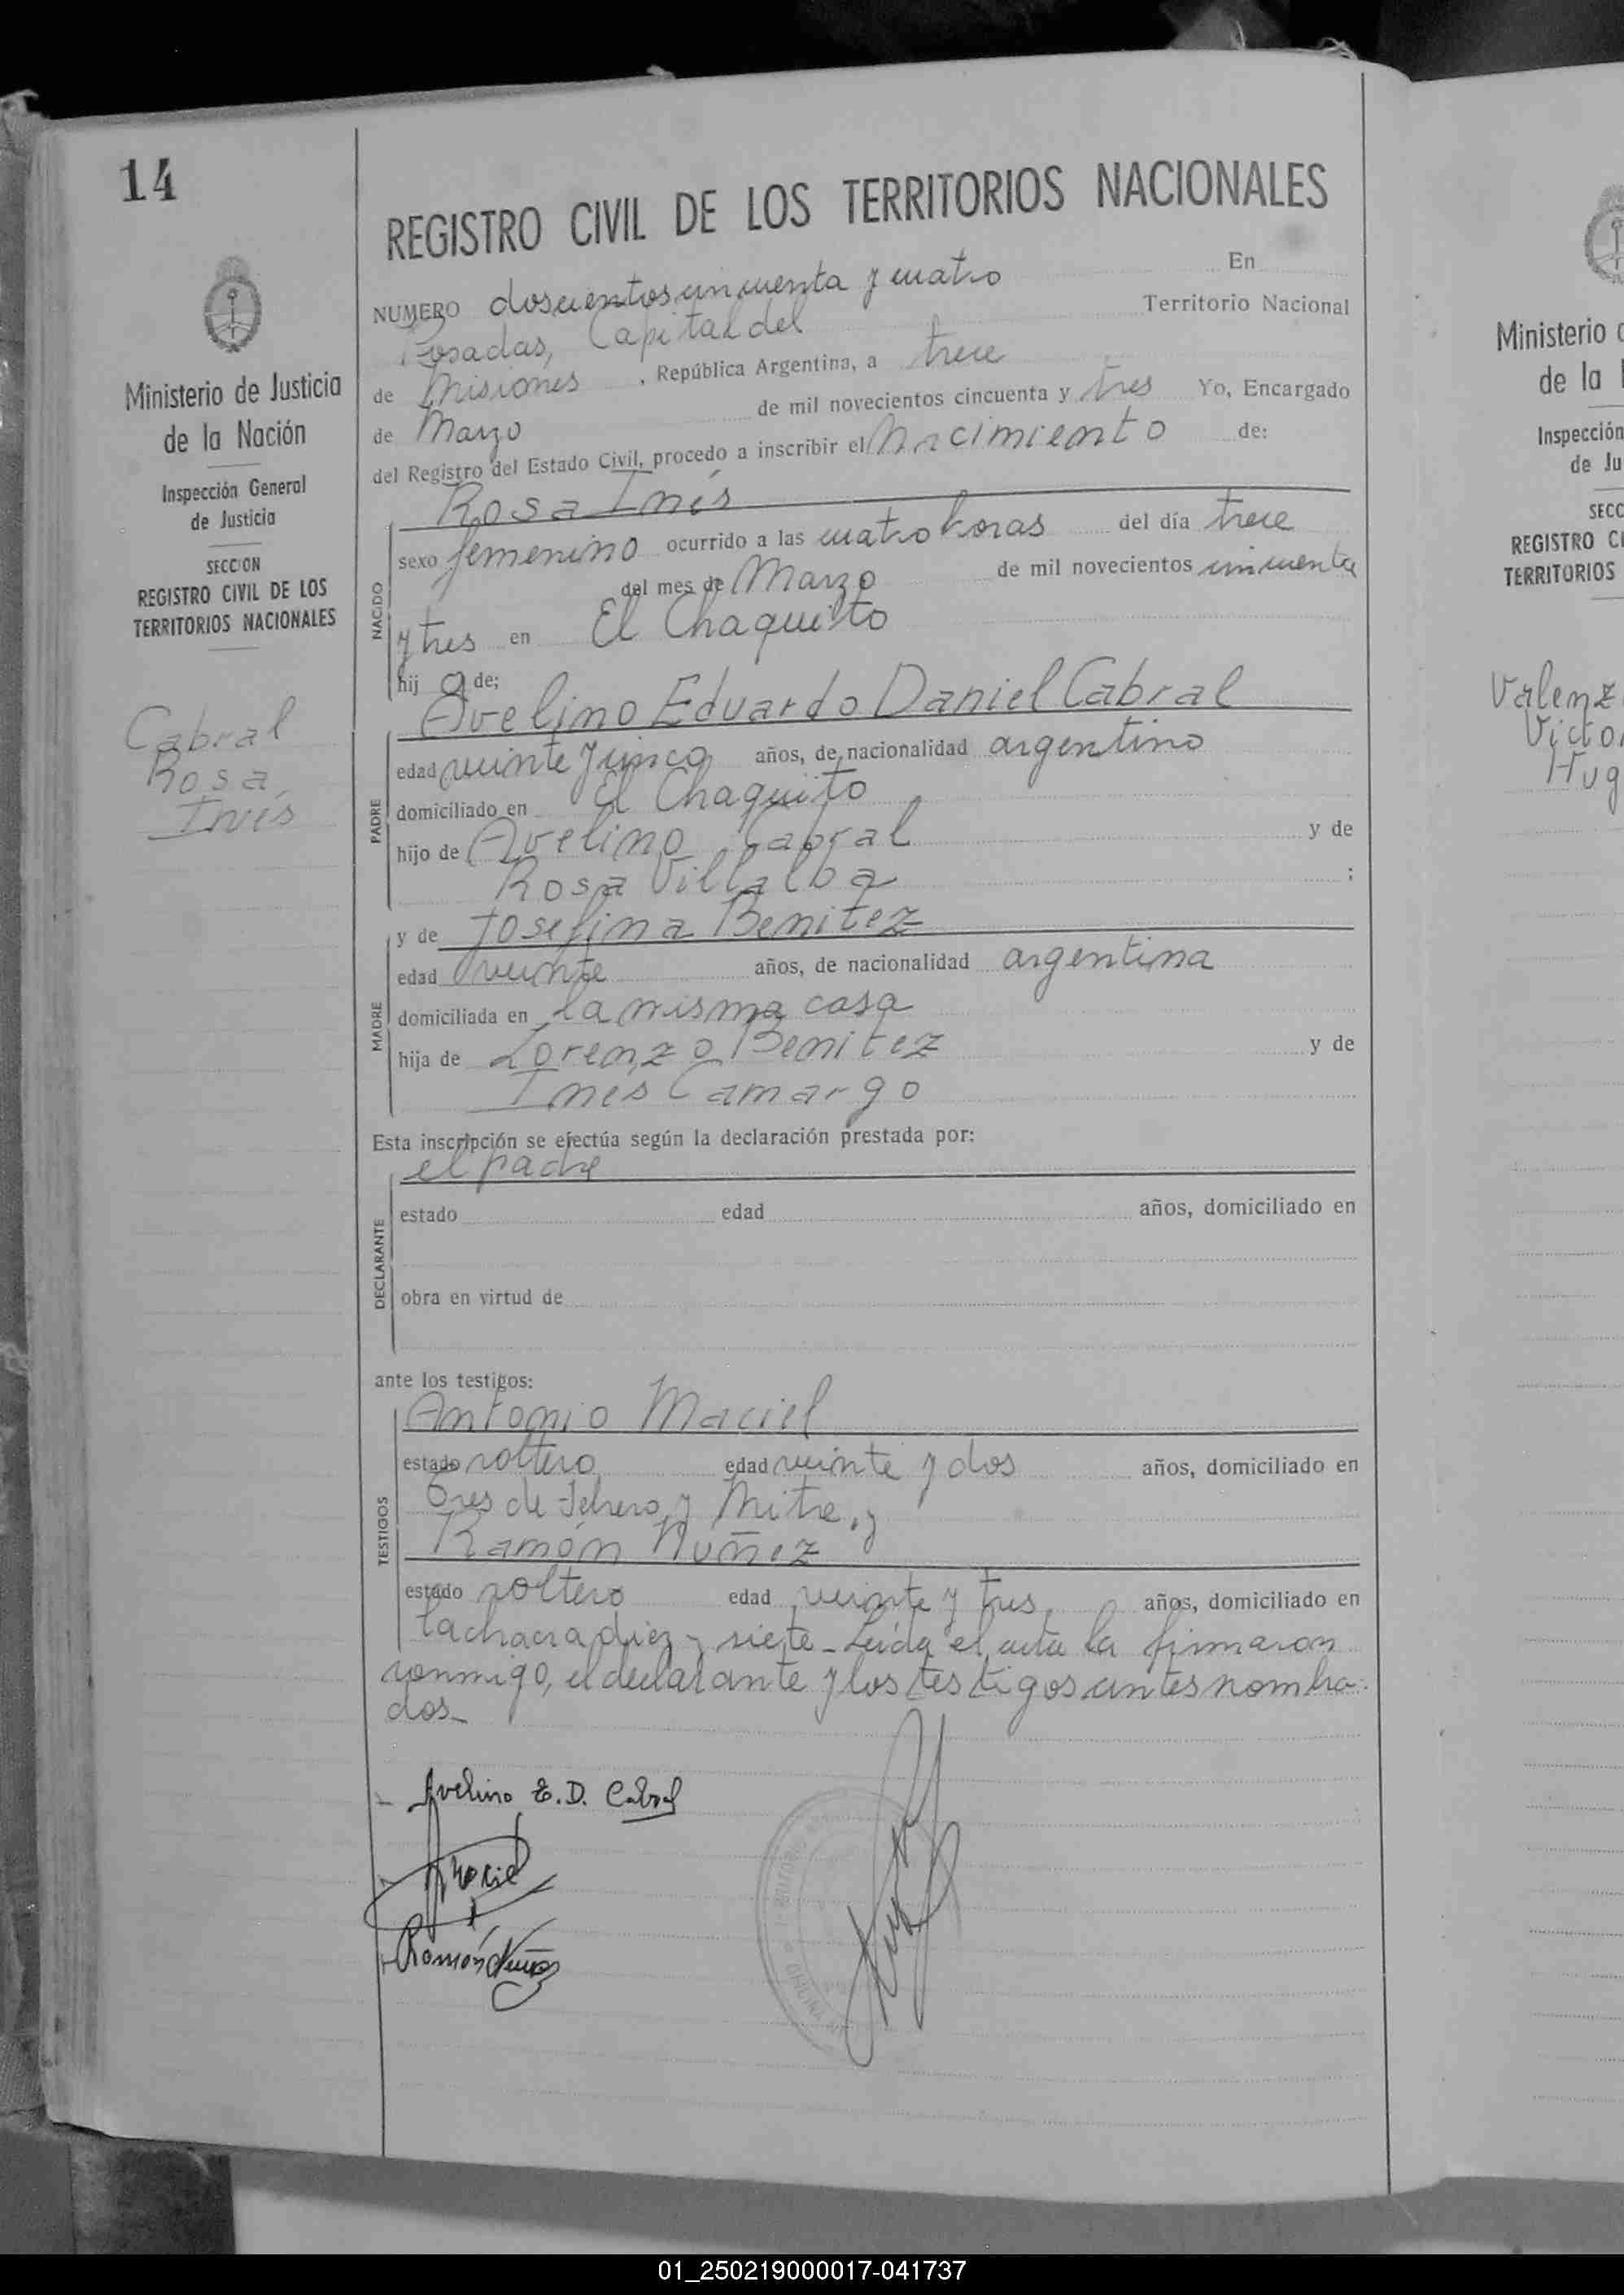 14
REGISTRO CIVIL DE LOS TERRITORIOS NACIONALES
NUMERO doscientos cincuenta y cuatro En
Posadas, Capital del Territorio Nacional
de Misiones, República Argentina, a trece
de Marzo de mil novecientos cincuenta y tres Yo, Encargado
del Registro del Estado Civil, procedo a inscribir el Nacimiento de:
Rosa Inés
NACIDO
sexo femenino ocurrido a las cuatro horas del día trece
del mes de Marzo de mil novecientos cincuenta
y tres en El Chaquito
hij a de;
Avelino Eduardo Daniel Cabral
PADRE
edad veinte y cinco años, de nacionalidad argentino
domiciliado en El Chaquito
hijo de Avelino Cabral y de
Rosa Villalba ;
y de Josefina Benitez
MADRE
edad veinte años, de nacionalidad argentina
domiciliada en la misma casa
hija de Lorenzo Benitez y de
Inés Camargo
Esta inscripción se efectúa según la declaración prestada por:
el padre
DECLARANTE
estado edad años, domiciliado en
obra en virtud de
ante los testigos:
Antonio Maciel
TESTIGOS
estado soltero edad veinte y dos años, domiciliado en
Tres de Febrero y Mitre, y
Ramón Nuñez
estado soltero edad veinte y tres años, domiciliado en
la chacra diez y siete - Leída el acta la firmaron
conmigo, el declarante y los testigos antes nombra-
dos-
Avelino E. D. Cabral
Maciel
Ramón Nuñez
Ministerio de Justicia
de la Nación
Inspección General
de Justicia
SECCION
REGISTRO CIVIL DE LOS
TERRITORIOS NACIONALES
Cabral
Rosa
Inés
Ministerio
de la
Inspección
de Ju
SECC
REGISTRO CI
TERRITORIOS
Valenz
Victo
Hug
01_250219000017-041737